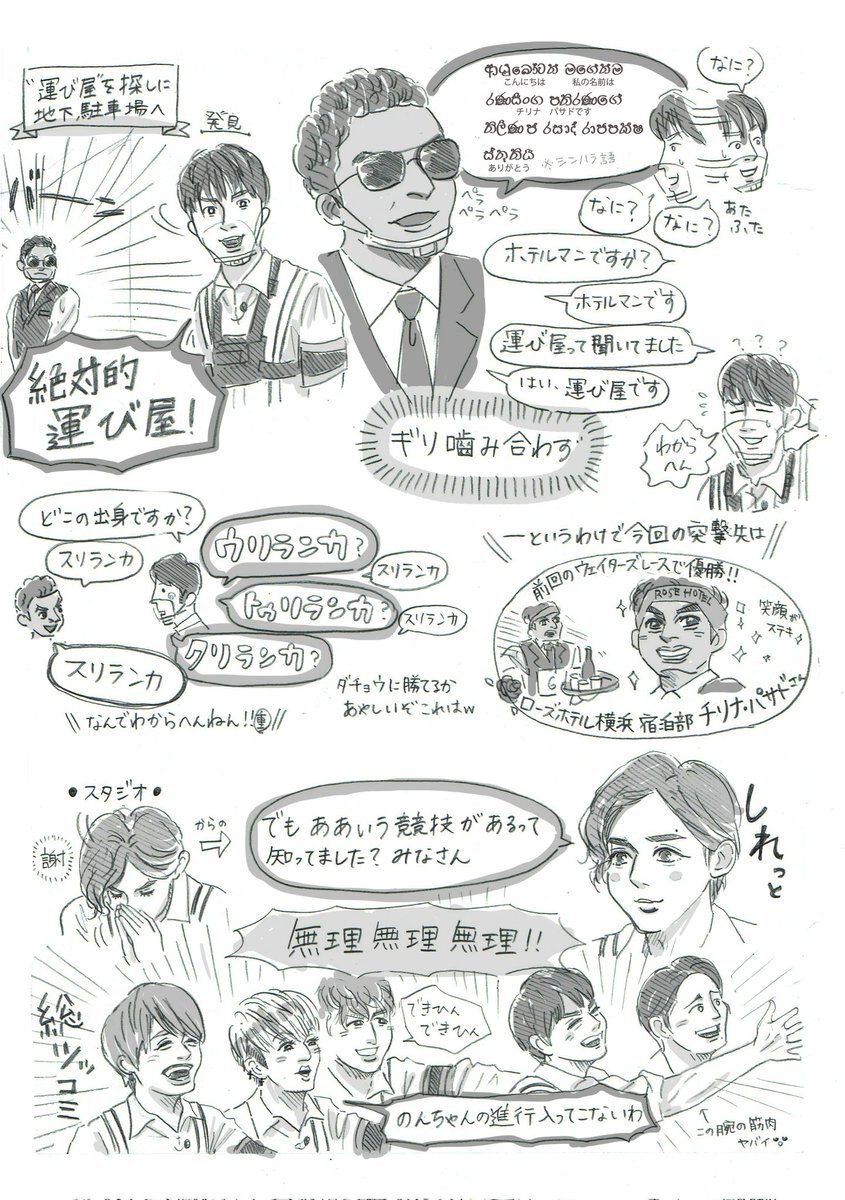 "運び屋"を探しに
地下駐車場へ
発見
バーン
絶対的
運び屋!
ආයුබෝවන් මගෙනම
こんにちは 私の名前は
රණසිංග පතිරණගේ
チリナ パサドです
ස්තුතියි
ありがとう ※シンハラ語
ペラ
ペラペラ
なに?
なに?
なに?
あた
ふた
ホテルマンですか?
ホテルマンです
運び屋って聞いてました
はい、運び屋です
ギリ噛み合わず
???
わから
へん
どこの出身ですか?
スリランカ
ウリランカ?
スリランカ
トゥリランカ?
スリランカ
クリランカ?
スリランカ
\\なんでわからへんねん!!重//
ダチョウに勝てるか
あやしいぞこれはw
\\ーというわけで今回の突撃先は//
前回のウェイターズレースで優勝!!
ROSE HOTEL
笑顔が
ステキ
ローズホテル横浜 宿泊部 チリナ・パサドさん
•スタジオ•
謝
からの
でも ああいう競技があるって
知ってました? みなさん
しれっと
無理 無理 無理!!
総ツッコミ
できひん
できひん
のんちゃんの進行入ってこないわ
この腕の筋肉
ヤバイ